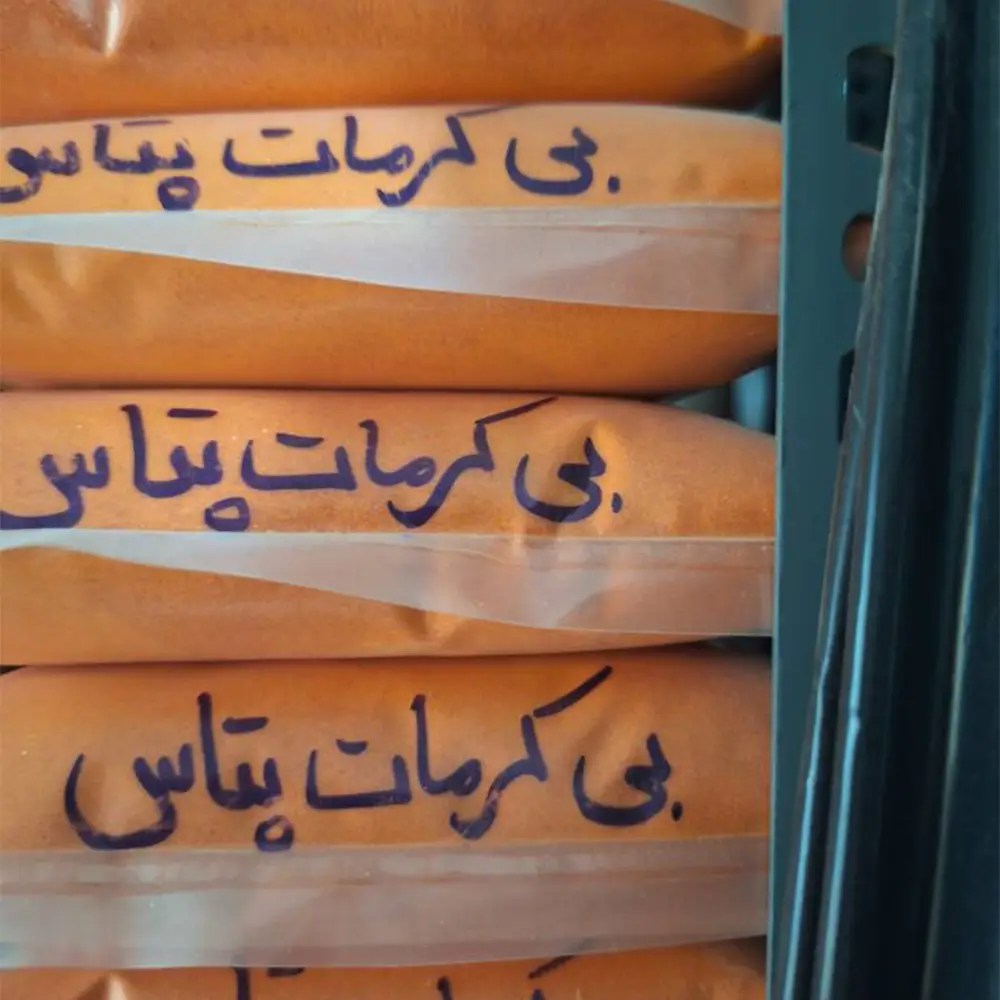 بی کرمات پتاس
بی کرمات پتاس
بی کرمات پتاس